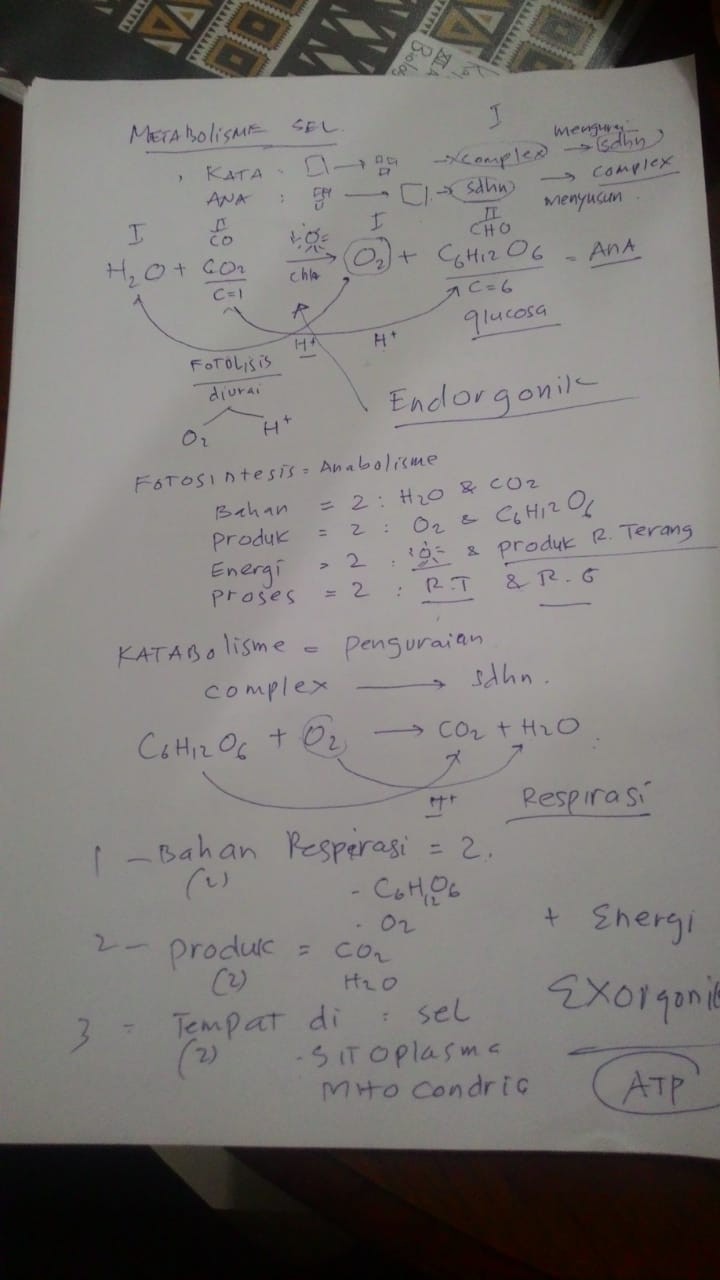 XII A
Biolog
I
METABOLISME SEL
mengurai
KATA : → → complex → sdhn
ANA : → → sdhn → complex
menyusun
I II I II
CO CHO
H2O + CO2 → O2 + C6H12O6 = ANA
C=1 chlo C=6
glucosa
H+ H+
FOTOLISIS
diurai
O2 H+
Endorgonik
FOTOSINTESIS = Anabolisme
Bahan = 2 : H2O & CO2
Produk = 2 : O2 & C6H12O6
Energi = 2 : & produk R. Terang
Proses = 2 : R.T & R.G
KATABOlisme = penguraian
complex → sdhn.
C6H12O6 + O2 → CO2 + H2O
H+
Respirasi
1 - Bahan Respirasi = 2.
(2) - C6H12O6
- O2
+ Energi
2 - produk = CO2
(2) H2O
Exorgonik
3 = Tempat di : sel
(2) - SITOplasma
MITO condria
ATP